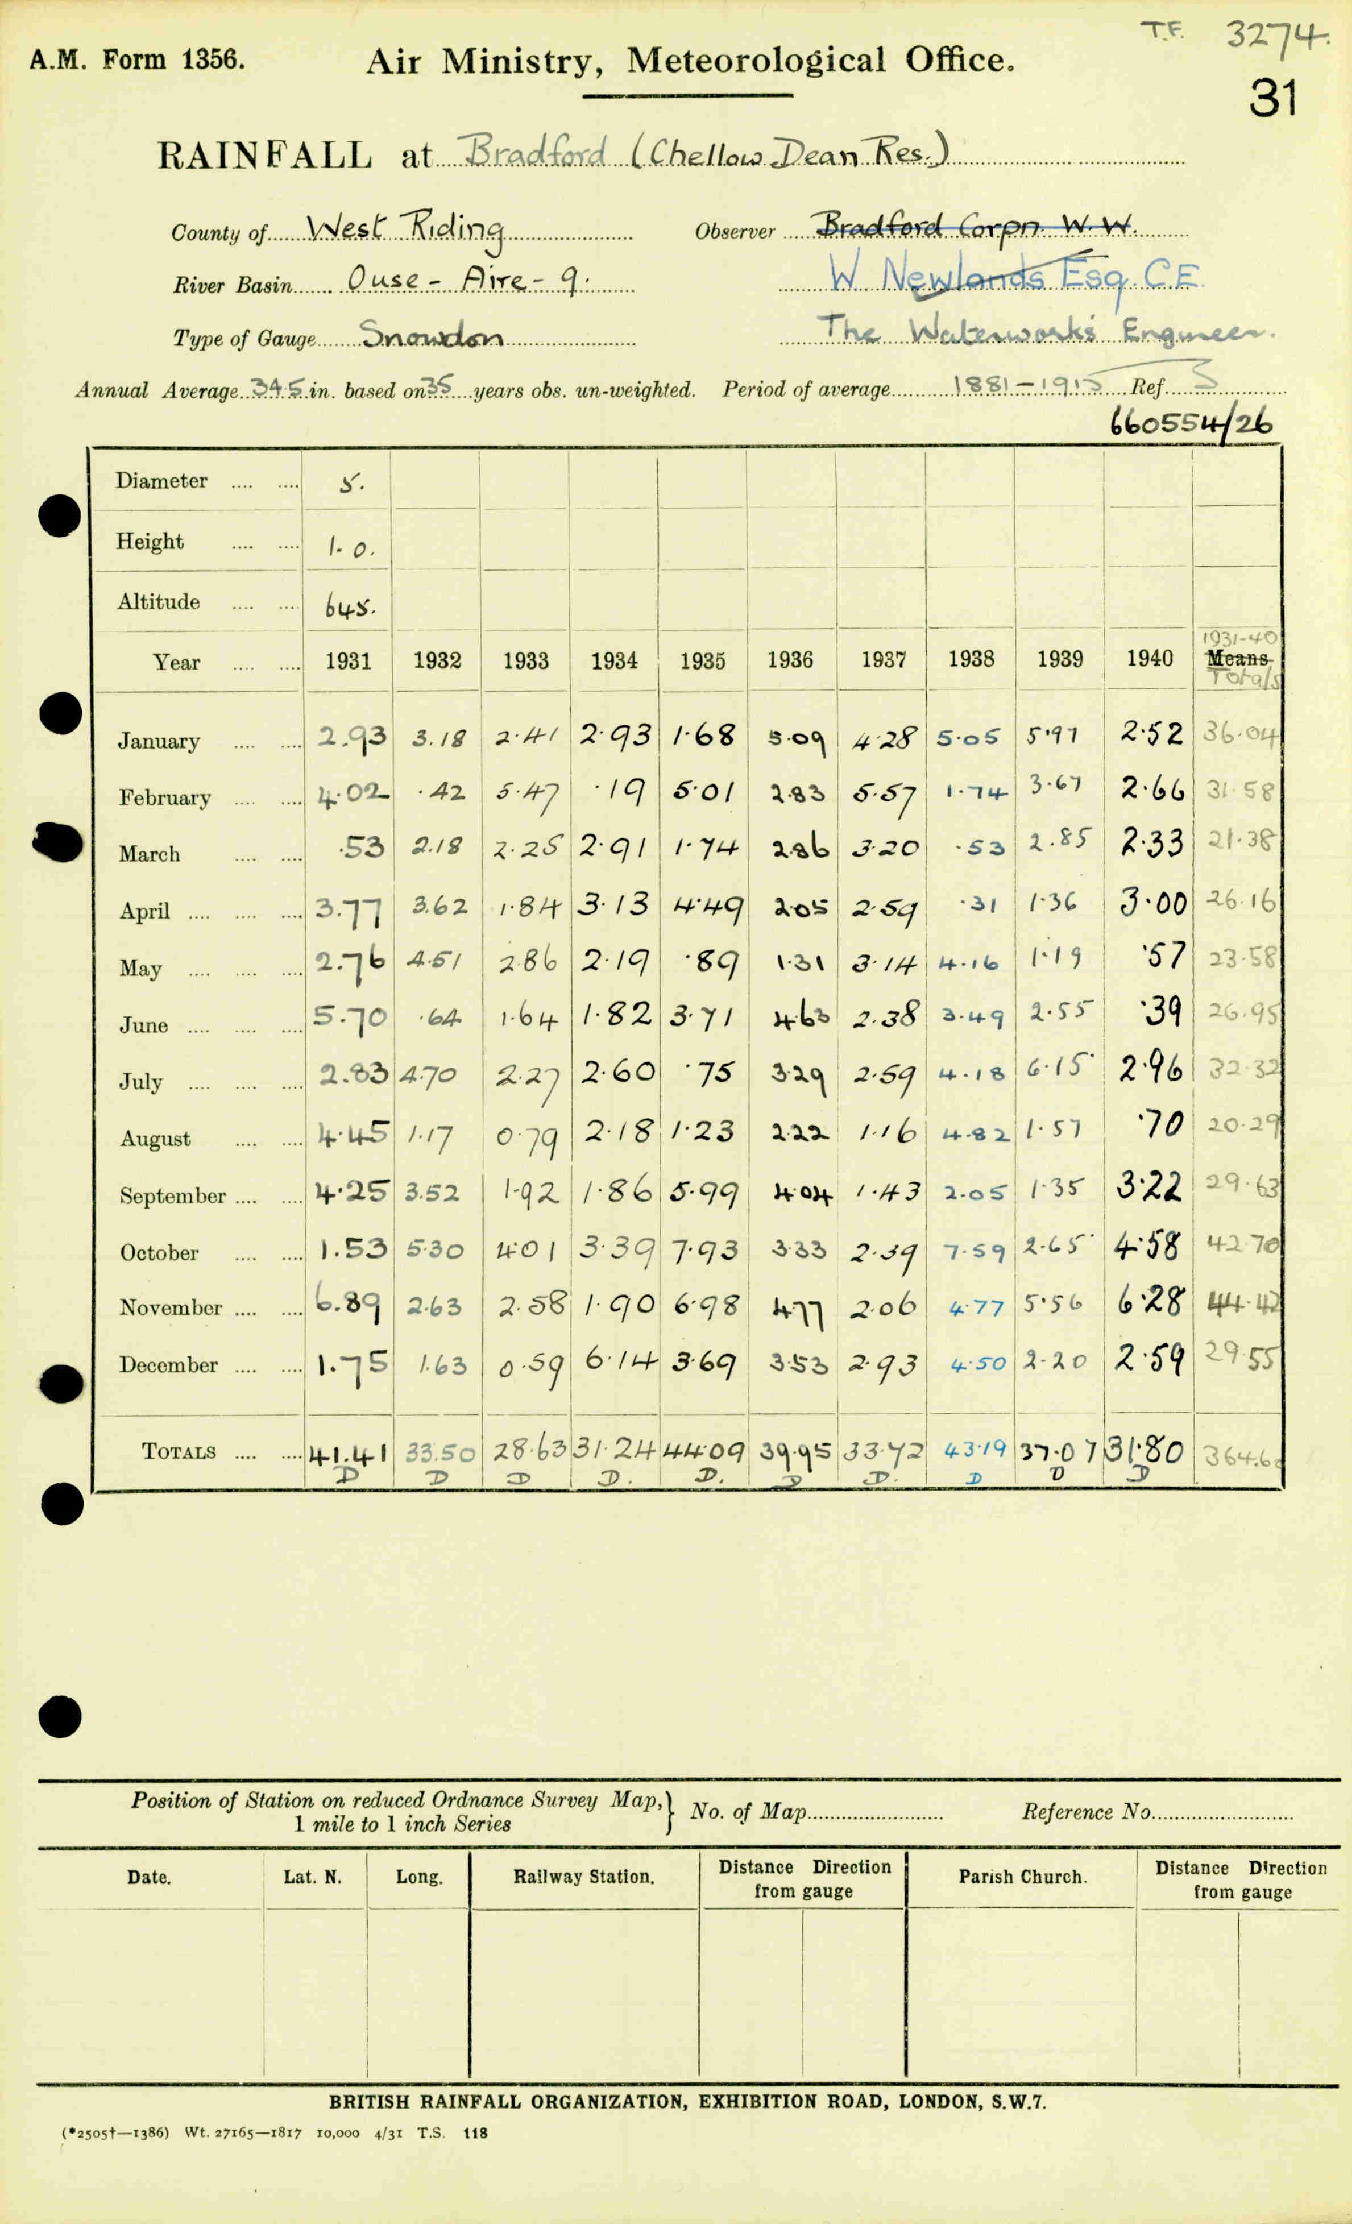 T.F. 3274.
A.M. Form 1356. Air Ministry, Meteorological Office.
31
RAINFALL at Bradford (Chellow Dean Res.)
County of West Riding Observer Bradford Corpn. W.W.
River Basin Ouse - Aire - 9. W Newlands Esq. C.E.
Type of Gauge Snowdon The Waterworks Engineer.
Annual Average 34.5 in. based on 35 years obs. un-weighted. Period of average 1881-1915 Ref. S
660554/26
Diameter .... .... 5.
Height .... .... 1. 0.
Altitude .... .... 645.
1931-40
Year .... .... 1931 1932 1933 1934 1935 1936 1937 1938 1939 1940 Means
Totals
January .... .... 2.93 3.18 2.41 2.93 1.68 5.09 4.28 5.05 5.97 2.52 36.04
February .... .... 4.02 .42 5.47 .19 5.01 2.83 5.57 1.74 3.67 2.66 31.58
March .... .... .53 2.18 2.25 2.91 1.74 2.86 3.20 .53 2.85 2.33 21.38
April .... .... .... 3.77 3.62 1.84 3.13 4.49 2.05 2.59 .31 1.36 3.00 26.16
May .... .... .... 2.76 4.51 2.86 2.19 .89 1.31 3.14 4.16 1.19 .57 23.58
June .... .... .... 5.70 .64 1.64 1.82 3.71 4.63 2.38 3.49 2.55 .39 26.95
July .... .... .... 2.83 4.70 2.27 2.60 .75 3.29 2.59 4.18 6.15 2.96 32.32
August .... .... 4.45 1.17 0.79 2.18 1.23 2.22 1.16 4.82 1.57 .70 20.29
September .... .... 4.25 3.52 1.92 1.86 5.99 4.04 1.43 2.05 1.35 3.22 29.63
October .... .... 1.53 5.30 4.01 3.39 7.93 3.33 2.39 7.59 2.65 4.58 42.70
November .... .... 6.89 2.63 2.58 1.90 6.98 4.77 2.06 4.77 5.56 6.28 44.42
December .... .... 1.75 1.63 0.59 6.14 3.69 3.53 2.93 4.50 2.20 2.59 29.55
TOTALS .... .... 41.41 33.50 28.63 31.24 44.09 39.95 33.72 43.19 37.07 31.80 364.60
D D D D. D. D D. D D D
Position of Station on reduced Ordnance Survey Map,} No. of Map Reference No.
1 mile to 1 inch Series
Date. Lat. N. Long. Railway Station. Distance Direction from gauge Parish Church. Distance Direction from gauge
BRITISH RAINFALL ORGANIZATION, EXHIBITION ROAD, LONDON, S.W.7.
(*2505†—1386) Wt. 27165—1817 10,000 4/31 T.S. 118